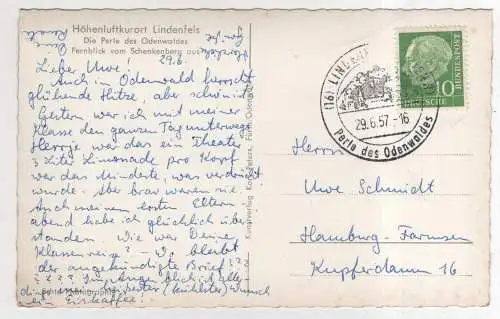 Höhenluftkurort Lindenfels
Die Perle des Odenwaldes
Fernblick vom Schenkenberg aus
29.6.
Lieber Uwe!
Auch im Odenwald herrscht
glühende Hitze, aber schön ist
Gestern war ich mit meiner
Klasse den ganzen Tag unterwegs
Herrje war das ein Theater
3 Liter Limonade pro Kopf
war das Mindeste, was verdrückt
wurde. Aber brav waren sie.
Auch meinen ersten Eltern-
abend habe ich glücklich über-
standen. Wie war Deine
Klassenreise? Wo bleibt
der angekündigte Brief??
? ? ?
mein (kühlster) Wunsch
ein Eiskaffee!
Kunstverlag
Echte Photographie
(16) LINDENFELS
29.6.57.-16
Perle des Odenwaldes
10
DEUTSCHE
BUNDESPOST
Herrn
Uwe Schmidt
Hamburg-Farmsen
Kupferdamm 16